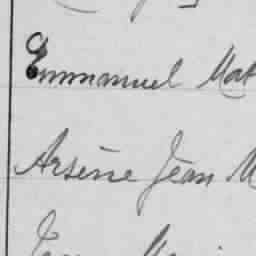 Emmanuel Mat
Arsène Jean M